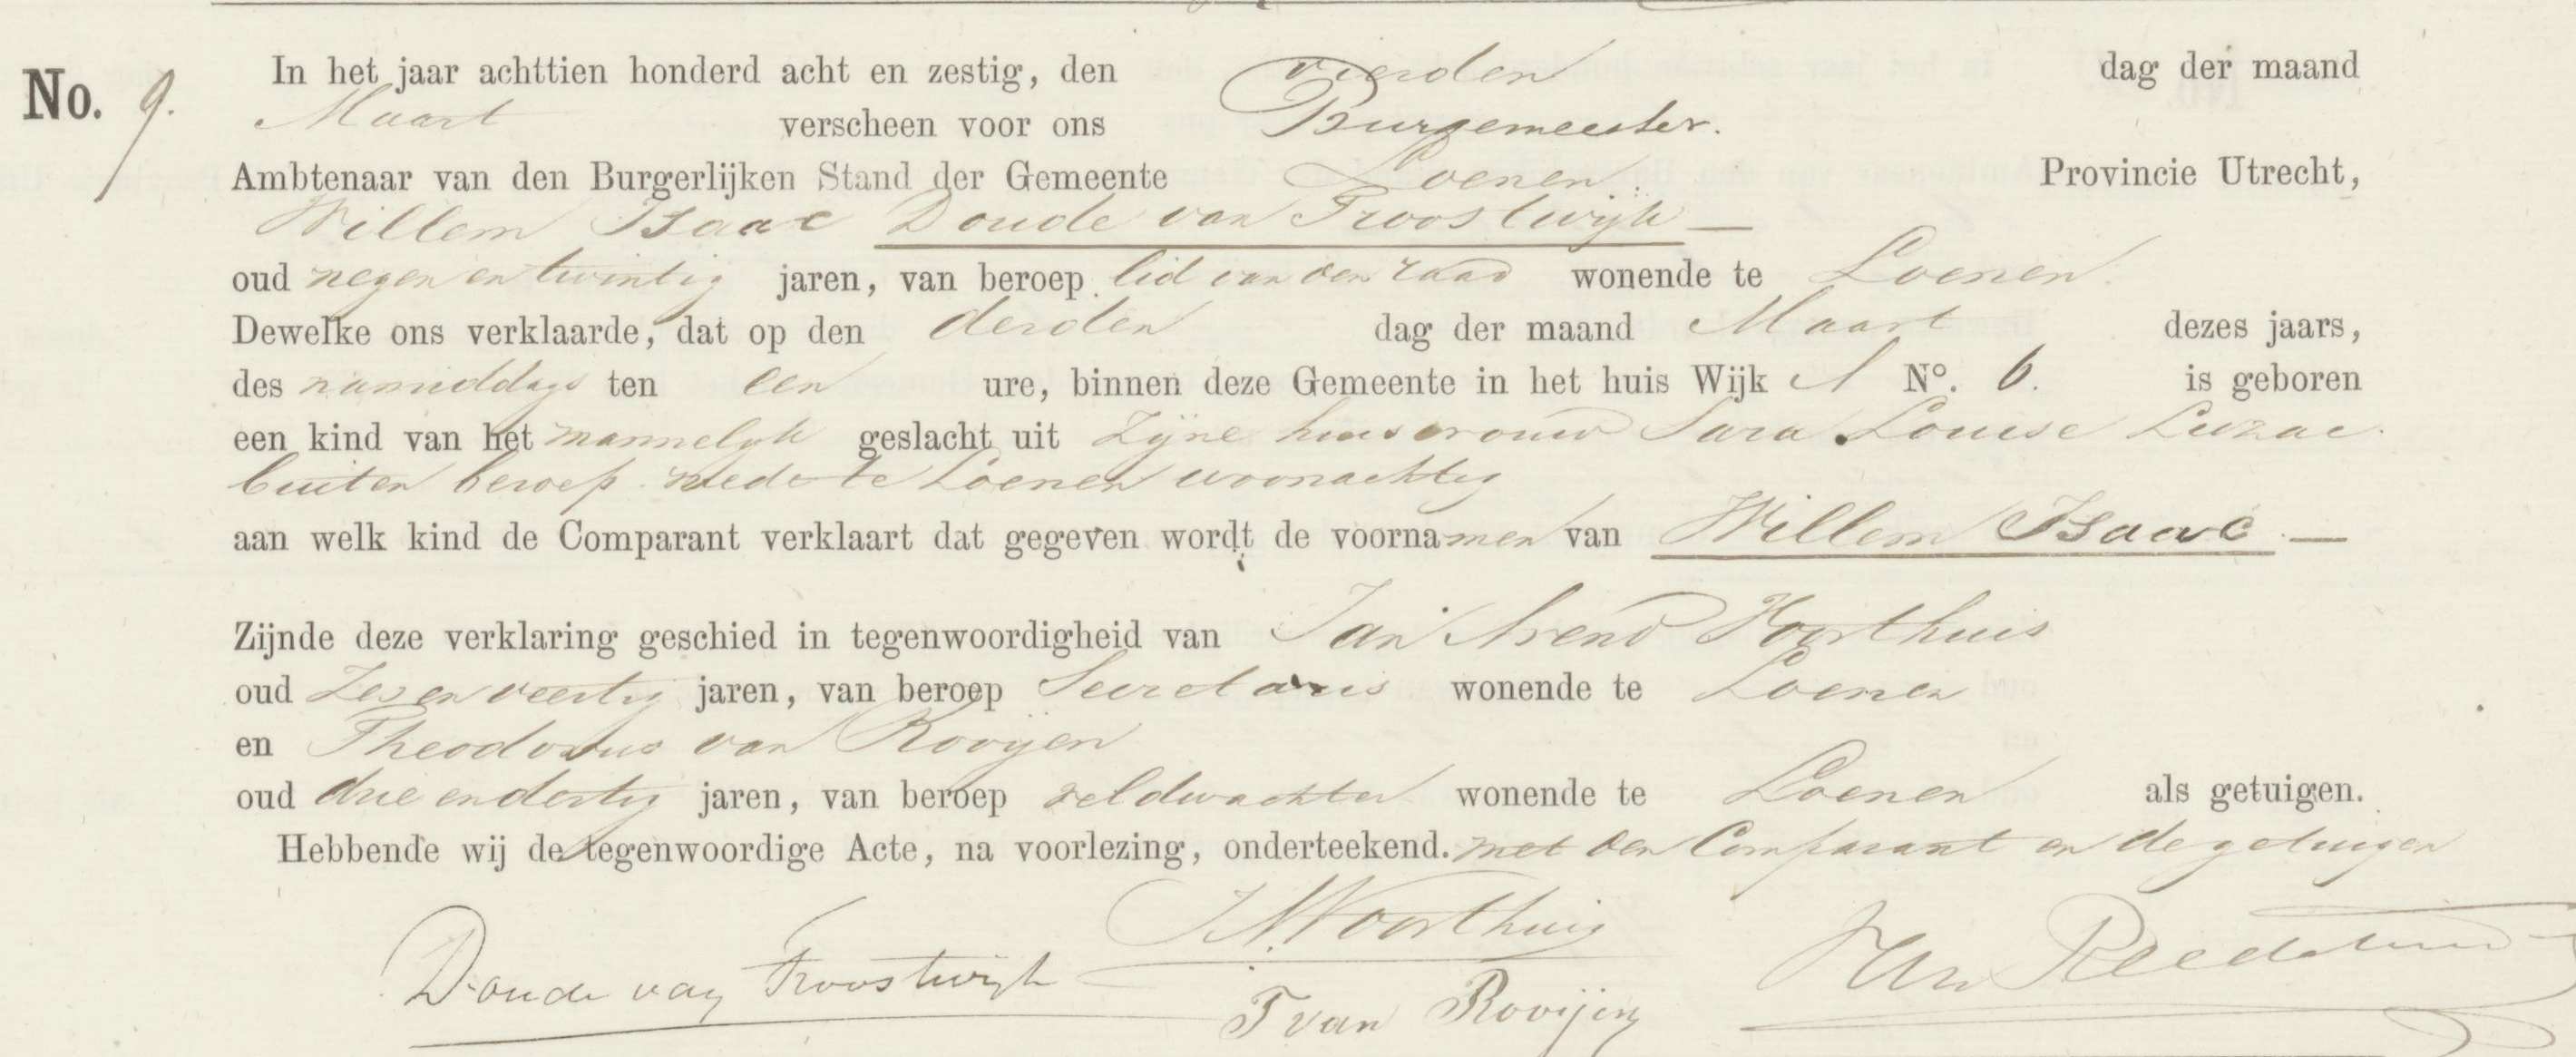 No. 9. In het jaar achttien honderd acht en zestig, den vierden dag der maand
Maart verscheen voor ons Burgemeester.
Ambtenaar van den Burgerlijken Stand der Gemeente Loenen Provincie Utrecht,
Willem Isaac Doude van Troostwijk —
oud negen en twintig jaren, van beroep lid van den raad wonende te Loenen.
Dewelke ons verklaarde, dat op den derden dag der maand Maart dezes jaars,
des namiddags ten een ure, binnen deze Gemeente in het huis Wijk A No. 6. is geboren
een kind van het mannelijk geslacht uit zijne huisvrouw Sara Louise Luzac
buiten beroep mede te Loenen woonachtig
aan welk kind de Comparant verklaart dat gegeven wordt de voornamen van Willem Isaac —
Zijnde deze verklaring geschied in tegenwoordigheid van Jan Arend Voorthuis
oud zes en veertig jaren, van beroep Secretaris wonende te Loenen
en Theodorus van Rooijen
oud drie en dertig jaren, van beroep veldwachter wonende te Loenen als getuigen.
Hebbende wij de tegenwoordige Acte, na voorlezing, onderteekend. met den Comparant en de getuigen
Doude van Troostwijk
Voorthuis
T van Rooijen